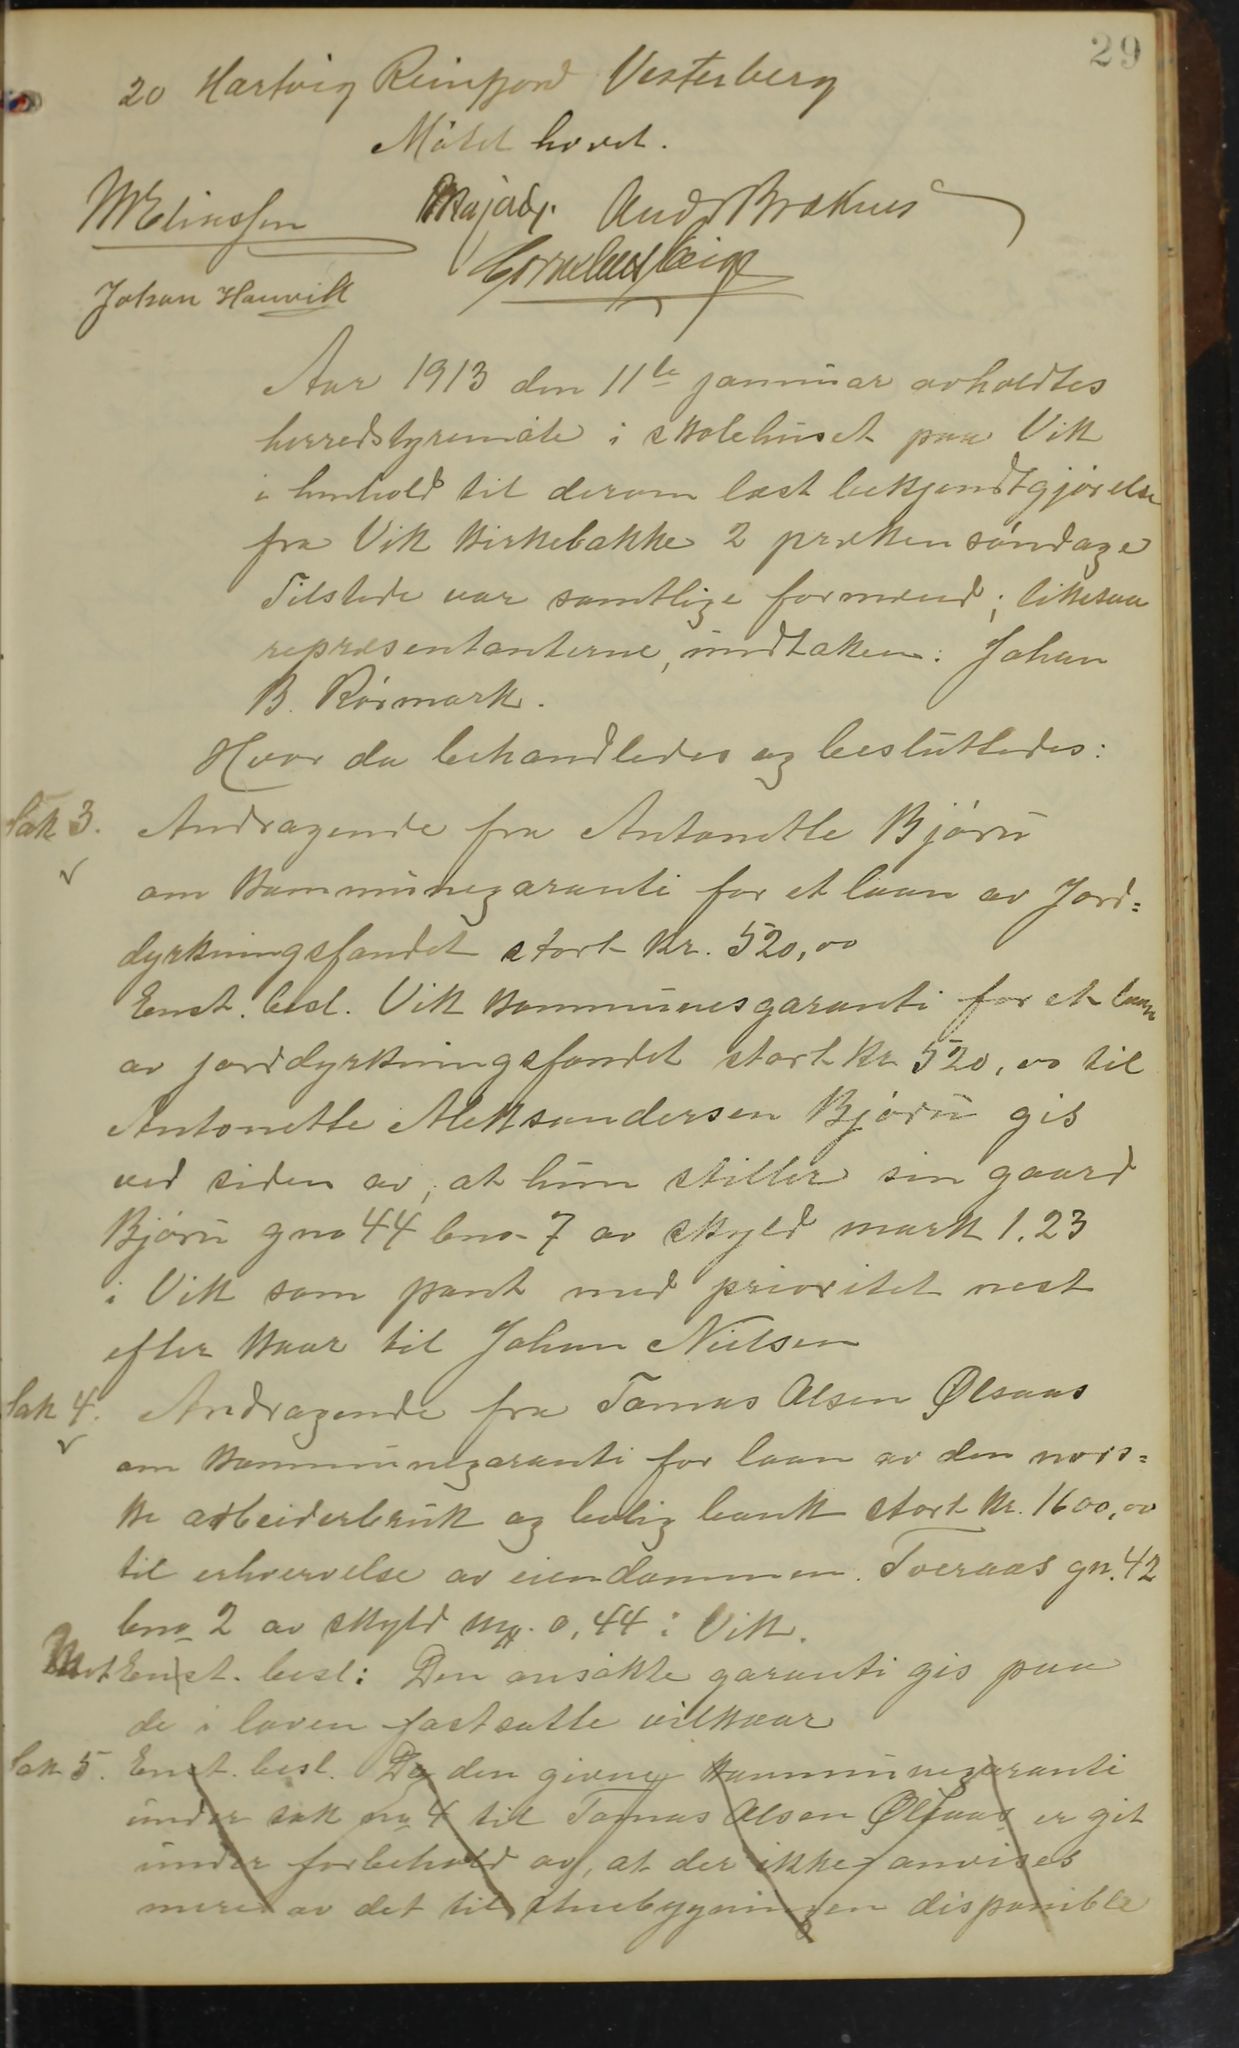 29
20 Hartvig Reinfjord Vesterberg
Møtet hævet.
M Elinassen Majordj. And Brækus
Cornelius Leige
Johan Hauvik
Aar 1913 den 11te januar avholdtes
herredstyremøte i skolehuset paa Vik
i henhold til derom læst bekjendtgjørelse
fra Vik kirkebakke 2 prækensøndage
Tilstede var samtlige formænd; likesaa
repræsentanterne, undtaken: Johan
B. Rørmark.
Hvor da behandledes og besluttedes:
Sak 3. Andragende fra Antonette Bjøru
om kommunegaranti for et laan av Jord=
dyrkningsfondet stort kr. 520,00
Enst. besl. Vik kommunesgaranti for et laan
av jorddyrkningsfondet stort kr 520,00 til
Antonette Aleksandersen Bjøru gis
ved siden av, at hun stiller sin gaard
Bjøru gno 44 bno 7 av skyld mark 1.23
i Vik som pant med prioritet nest
efter kaar til Johan Nielsen
Sak 4. Andragende fra Tomas Olsen Ølsaas
om kommunegaranti for laan av den nors=
ke arbeiderbruk og bolig bank stort kr. 1600,00
til erhvervelse av eiendommen. Tveraas gn. 42
bno 2 av skyld mk. 0,44 i Vik.
Enst. besl: Den ansøkte garanti gis paa
de i loven fastsatte vilkaar
Sak 5. Enst. besl. Da den givne kommunegaranti
under sak no 4 til Tomas Olsen Ølsaas er git
under forbehold av, at der ikke anvises
mere av det til stuebygningen disponible